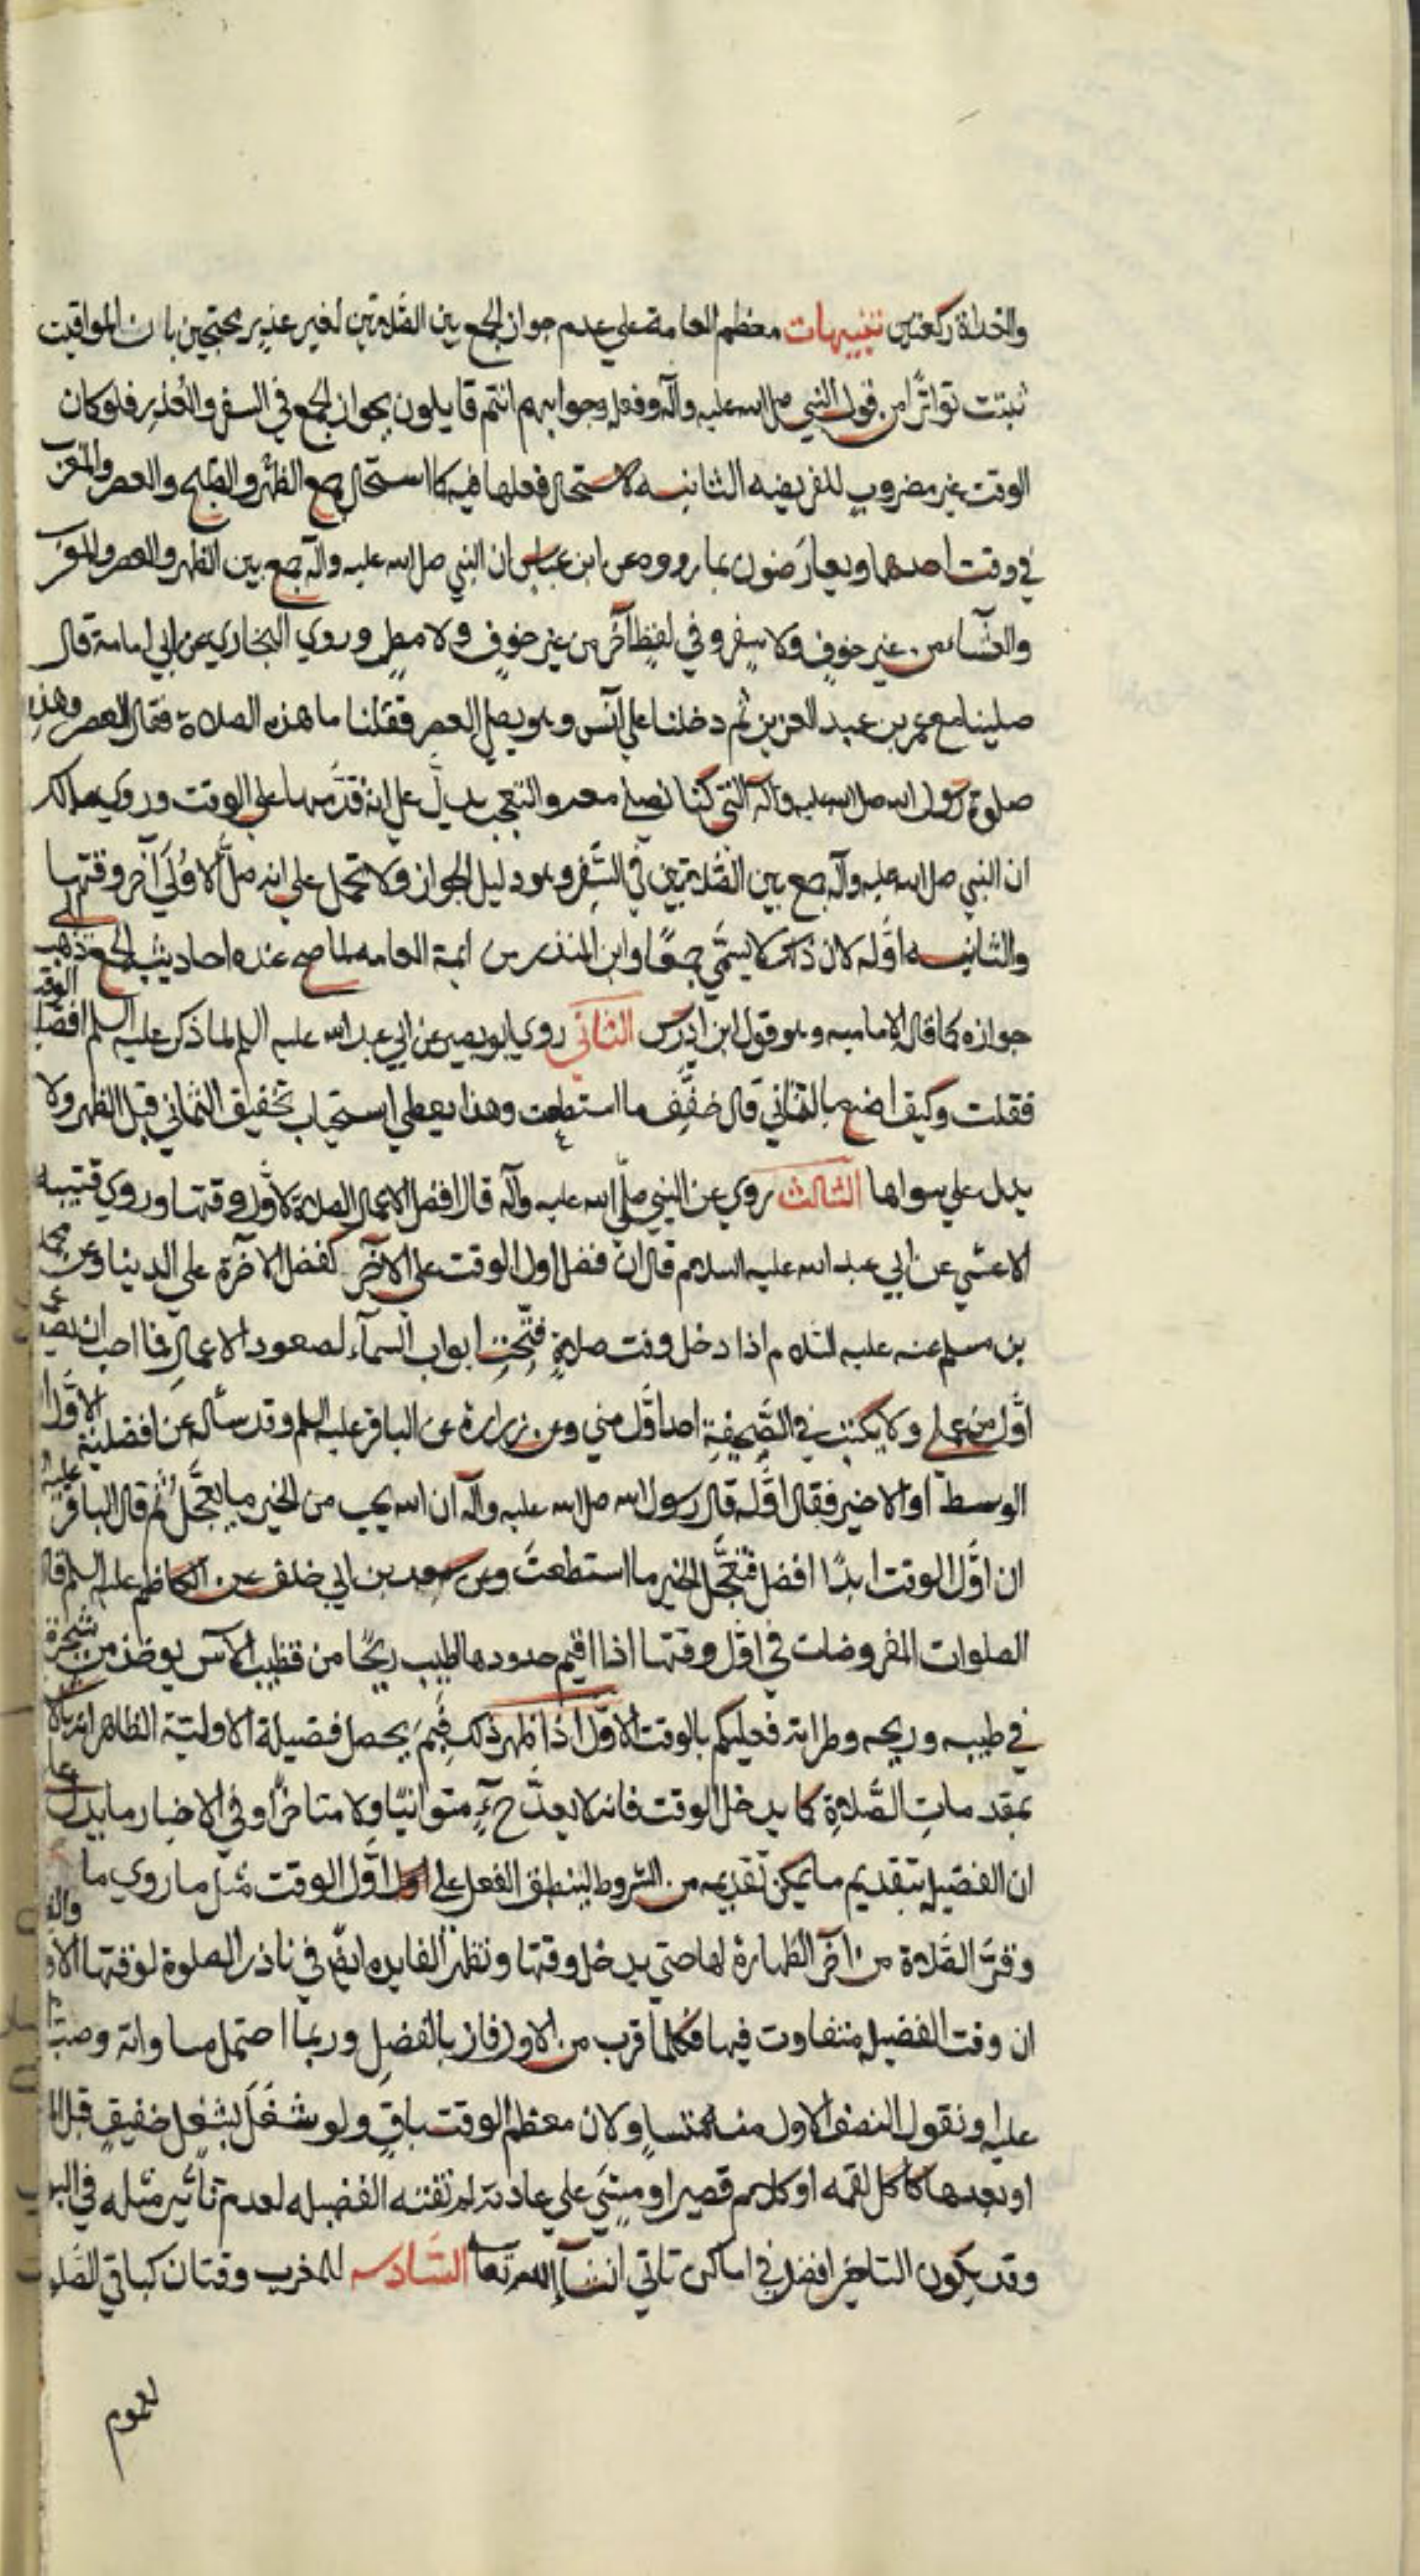 والغداة ركعتين تنبيهات معظم العامة على عدم جواز الجمع بين الصلاتين لغير عذر محتجين بان المواقيت
ثبتت تواترًا من قول النبي صلى الله عليه وآله وفعله وجوابهم انتم قايلون بجواز الجمع في السفر والعذر فلو كان
الوقت غير مضروب للفريضه الثانيه لاستحال فعلها فيه كما استحال جمع الظهر والصبح والعصر والمغرب
في وقت احدهما ويعارضون بما رووه عن ابن عباس ان النبي صلى الله عليه وآله جمع بين الظهر والعصر والمغرب
والعشاء من غير خوفٍ ولا سفر وفي لفظٍ آخر من غير خوفٍ ولا مطر وروي البخاري عن ابي امامة قال
صلينا مع عمر بن عبد العزيز ثم دخلنا علي انس وهو يصلي العصر فقلنا ما هذه الصلاة فقال العصر وهذه
صلوة رسول الله صلى الله عليه وآله التي كنا نصلي معه والتعجب يدل على انه قدمها على الوقت وروي مالك
ان النبي صلى الله عليه وآله جمع بين الصلاتين في السفر وهو دليل الجواز ولا تحمل على انه صلى الاولى آخر وقتها
والثانيه اوّله لان ذلك لا يسمّي جمعًا وابن المنذر من ايمة العامه لما صح عنده احاديث الجمع ذهب الى
جوازه كما قال الاماميه وهو قول ابن ادريس الثاني روي ابو بصير عن ابي عبد الله عليه السلم لما ذكر عليه السلم افضل الوقت
فقلت وكيف اضع بالثماني قال خفِّف ما استطعت وهذا يعطي استحباب تخفيف الثماني قبل الظهر ولا
يدل علي سواها الثالث روي عن النبي صلّى الله عليه وآله قال افضل الاعمال الصلاة لاول وقتها وروي قتيبه
الاعشي عن ابي عبد الله عليه السلام قال ان فضل اول الوقت على الآخر كفضل الآخرة على الدنيا وعن محمد
بن مسلم عنه عليه السلام اذا دخل وقت صلاةٍ فُتِحَت ابواب السمآء لصعود الاعمال فما احب ان يصعد عمل
اوّل من عملي ولا يكتب في الصّحيفة احد اوّل مني وعن زرارة عن الباقر عليه السلم وقد سأله عن افضلية الاوّل او
الوسط او الاخير فقال اوّله قال رسول الله صلى الله عليه وآله ان الله يحب من الخير ما يعجّل ثم قال الباقر عليه
ان اوّل الوقت ابدًا افضل فتعجّل الخير ما استطعتَ وعن سعد بن ابي خلف عن الكاظم عليه السلم قال
الصلوات المفروضات في اوّل وقتها اذا اقيم حدودها اطيب ريحًا من قضيب الآس يوخذ من شجرة
في طيبه وريحه وطراته فعليكم بالوقت الاوّل اذا ظهر ذلك فبِمَ يحصل فضيلة الاوليّة الظاهر انه بالا
بمقدمات الصّلاة كما يدخل الوقت فانه لا يعدّ ح متوانيًا ولا متاخرًا وفي الاخبار ما يدل على
ان الفضيله بتقديم ما يمكن تقديمه من الشروط لينطبق الفعل على اوّل الوقت مثل ما روي ما
وقّر الصّلاة من اخر الطهارة لها حتى يدخل وقتها وتظهر الفايده ايضًا في ناذر الصلوة لوقتها الاول
ان وقت الفضيله متفاوت فيها فكلما قرب من الاول فاز بالفضل وربما احتمل مساواته
عليه ونقول النصف الاول منه متساوٍ ولان معظم الوقت باقٍ ولو شغل بشغل خفيف قبل
او بعدها كاكل لقمه او كلام قصير او مشي على عادته لم تفته الفضيله لعدم تأثير مثله في
وقد يكون التاخير افضل في اماكن تاتي انشآء الله تعا السّادسه للمغرب وقتان كباقي الصّلو
للعموم